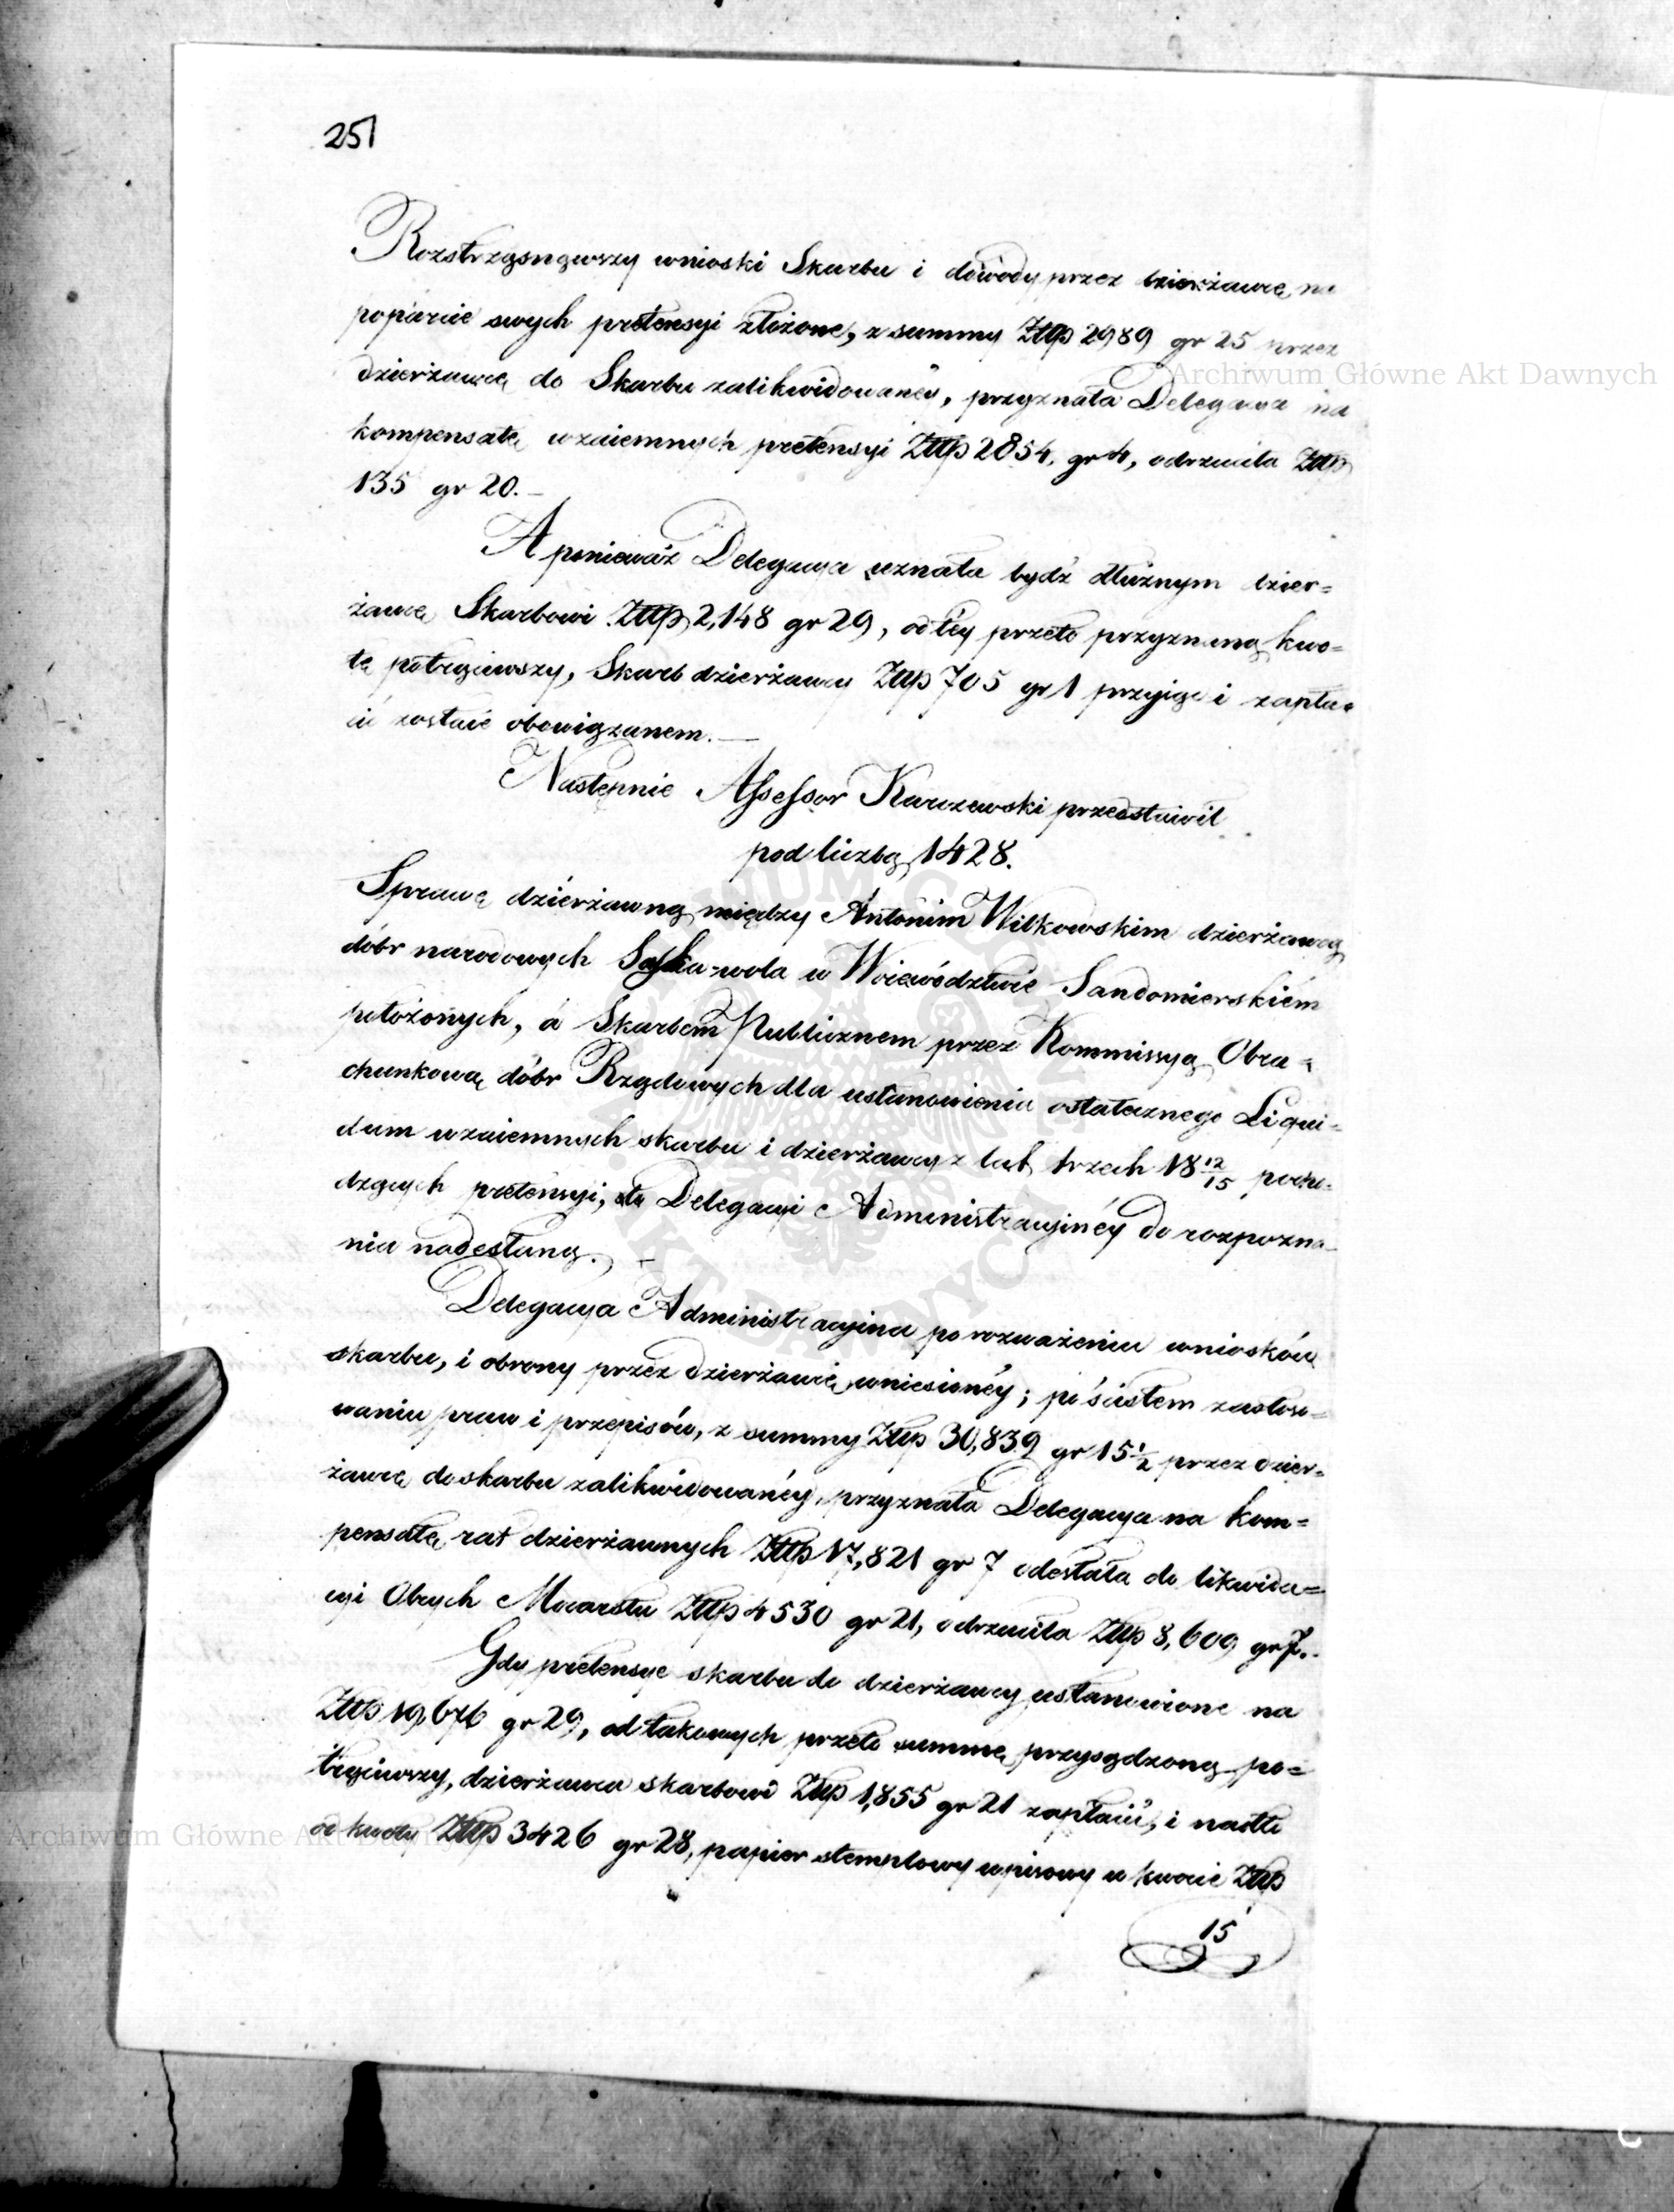 251
Rozstrzągsnąwszy wnioski Skarbu i dowody przez dzierżawcę na
poparcie swych pretensyi złożone, z summy Złłp 2989 gr 25 przez
dzierżawcę do Skarbu zalikwidowaney, przyznała Delegacya na
kompensatę wzaiemnych pretensyi Złłp 2854. gr 4, odrzuciła Złłp
135 gr 20. —
A ponieważ Delegacya uznała bydź dłużnym dzier=
żawcę Skarbowi Złłp 2,148 gr 29, od téy przeto przyznaną kwo=
tę potrąciwszy, Skarb dzierżawcy Złłp 705 gr 1 przyiąć i zapła=
cić zostaie obowiązanem. —
Następnie Assessor Karczewski przedstawił
pod liczbą 1428.
Sprawę dzierżawną między Antonim Wilkowskim dzierżawcą
dóbr narodowych wola w Woiewództwie Sandomierskiém
położonych, á Skarbem Publicznem przez Kommissyą Obra=
chunkową dóbr Rządowych dla ustanowienia ostatecznego Liqui=
dum wzaiemnych skarbu i dzierżawcy z lat trzech 18 12/15 pocho=
dzących pretensyi, do Delegacyi Administracyinéy do rozpozna=
nia nadesłaną. —
Delegacya Administracyina po rozważeniu wniosków
skarbu, i obrony przez dzierżawcę wniesionéy; po ścisłem zastoso=
waniu praw i przepisów, z summy Złłp 30,839 gr 15 1/2 przez dzier=
żawcę do skarbu zalikwidowanéy, przyznała Delegacya na kom=
pensatę rat dzierżawnych Złłp 17,821 gr 7 odesłała do likwida=
cyi Obcych Mocarstw Złłp 4530 gr 21, odrzuciła Złłp 8,609 gr 7.
Gdy pretensye skarbu do dzierżawcy ustanowione na
Złłp 19,676 gr 29, od takowych przeto summę przysądzoną po=
trąciwszy, dzierżawca skarbowi Złłp 1,855 gr 21 zapłacić, i nadto
od kwoty Złłp 3426 gr 28, papier stemplowy wpisowy w kwocie Złłp
15
Archiwum Główne Akt Dawnych
Archiwum Główne Akt